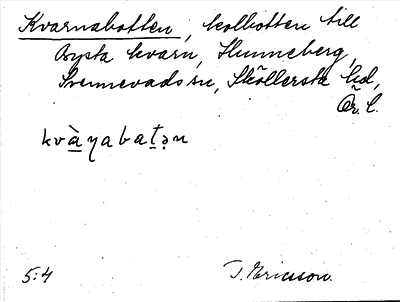 Kvarnabotten, kolbotten till
Bysta kvarn, Hunneberg,
Svennevads sn, Sköllersta hd,
Ör. l.
kvànabatən
5:4
J. Ericsson.